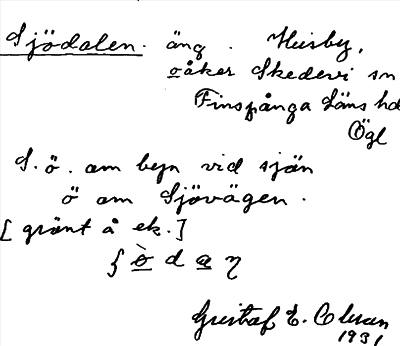 Sjödalen. äng. Husby,
o åker Skedevi sn
Finspånga läns hd
Ögl
S. ö. om byn vid sjön
ö om Sjövägen.
[gränt å ek.]
Gustaf E.
1931